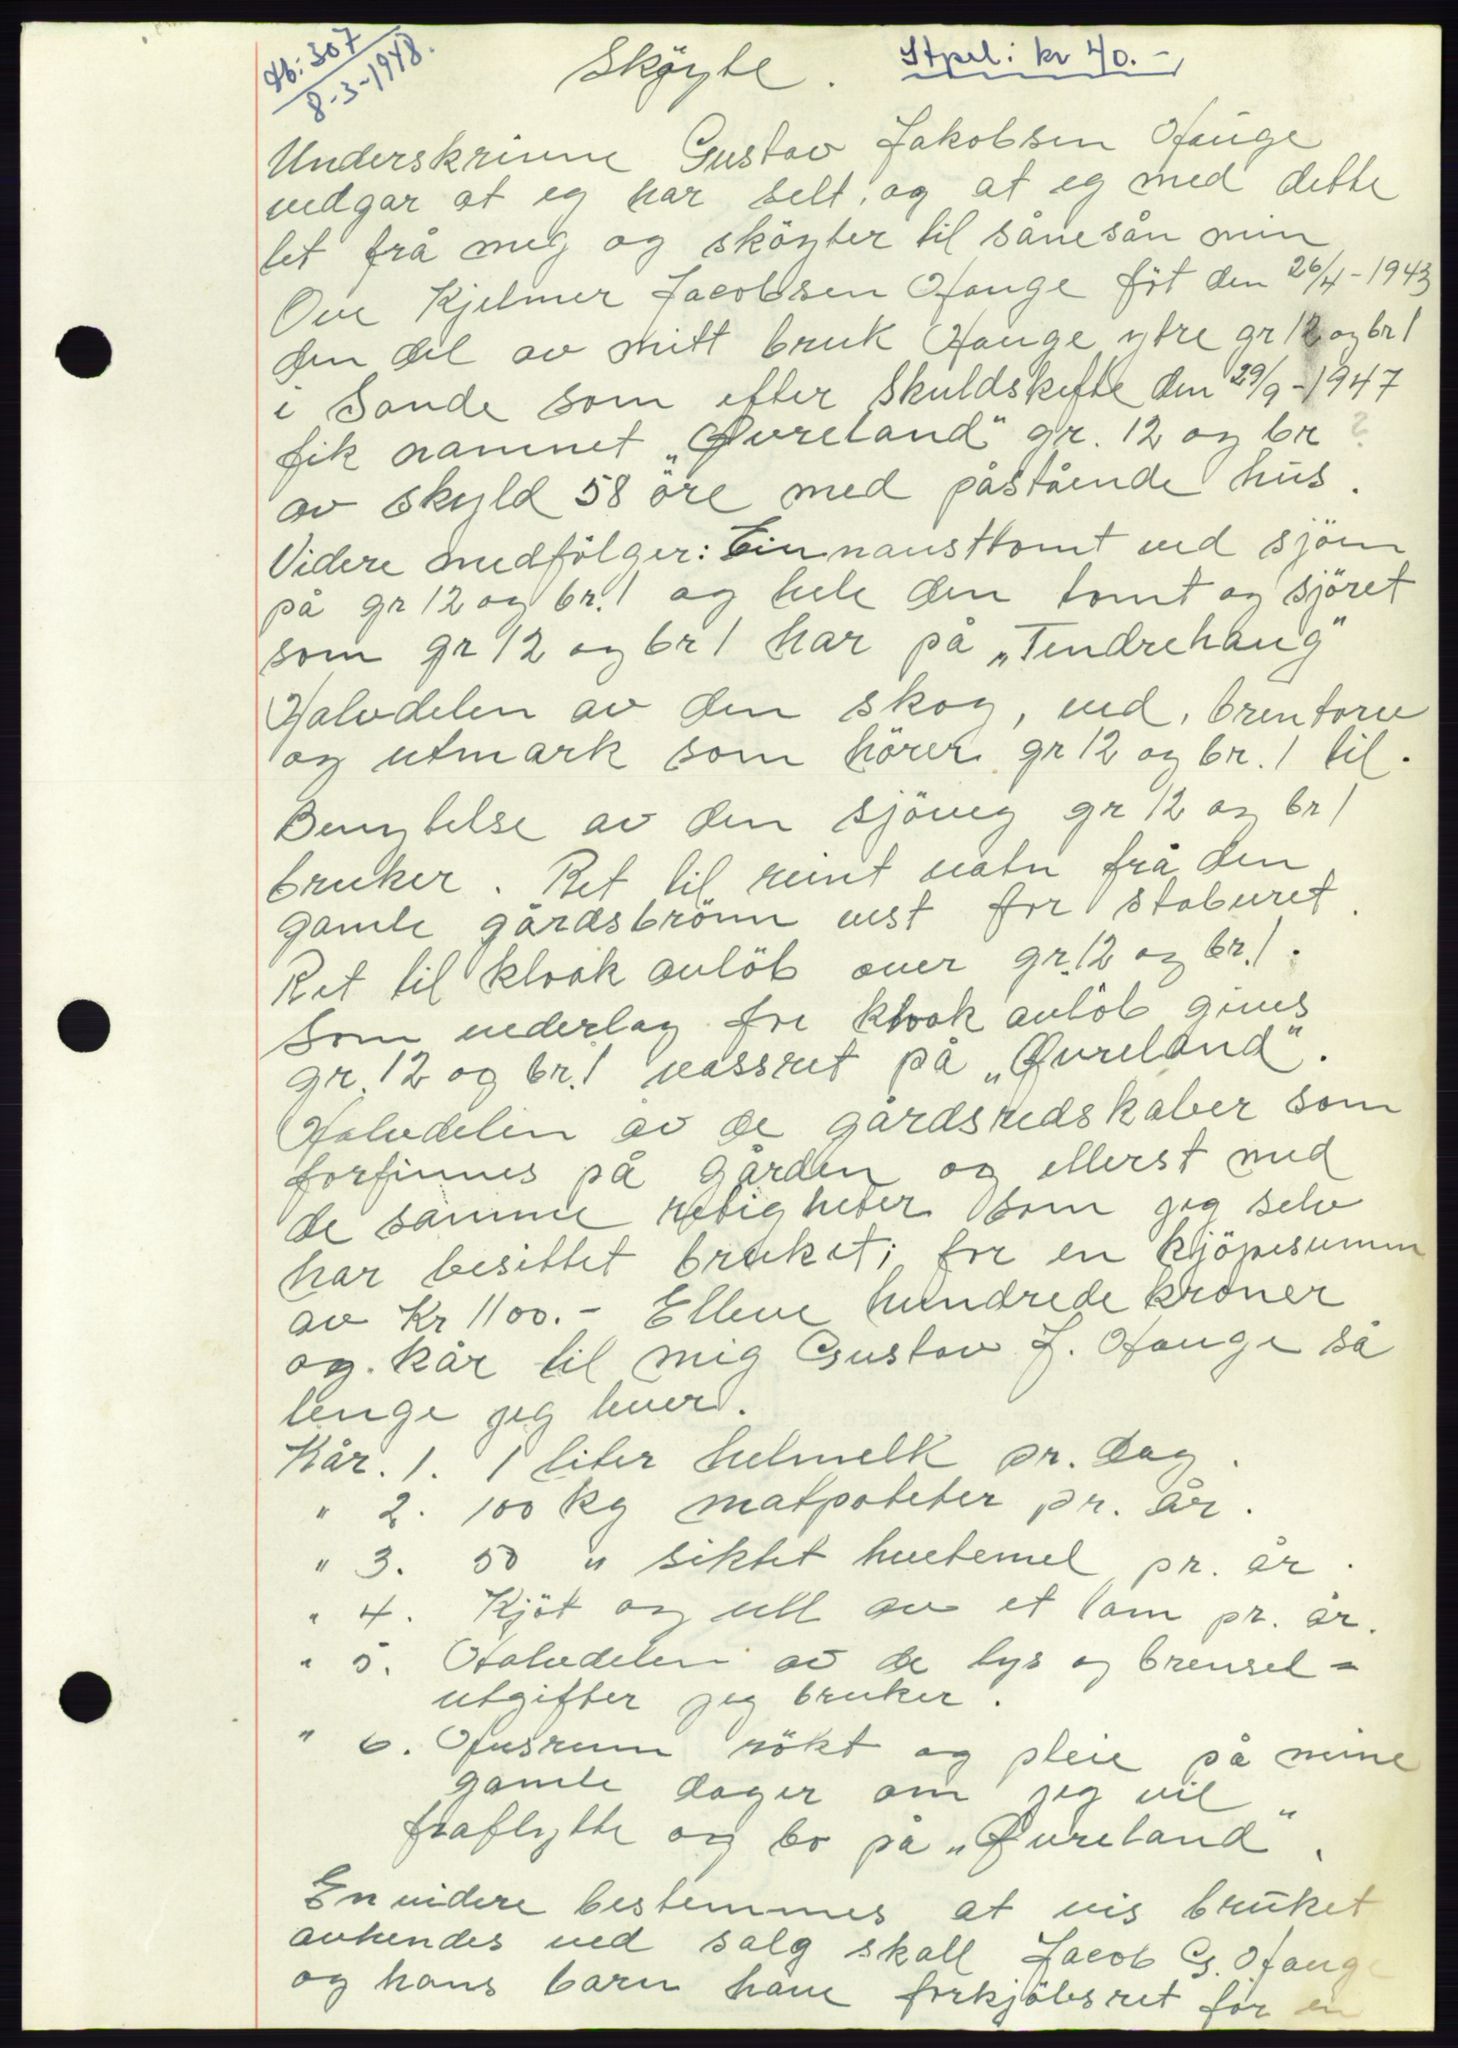 db: 307
8-3-1948.
Sköyte.
Stpel: kr 40.-
Underskrivne Gustav Jakobsen Hauge
vedgar at eg har selt, og at eg med dette
let frå meg og sköyter til sånesån min
Ove Kjelmer Jacobsen Hauge föt den 26/4-1943
den del av mitt bruk Hauge ytre gr 12 og br 1
i Sande som efter Skuldskefte den 29/9-1947
fik namnet „Øvreland" gr. 12 og br ?
av skyld 58 öre med påstående hus.
Videre medfölger: Ein nausttomt ved sjöen
på gr 12 og br. 1 og hele den tomt og sjöret
som gr 12 og br 1 har på „Tendrehaug"
Halvdelen av den skog, ved, brentorv
og utmark som hörer gr 12 og br. 1 til.
Benytelse av den sjöveg gr 12 og br 1
bruker. Ret til reint vatn frå den
gamle gårdsbrönn vest for staburet.
Ret til kloak avlöb over gr. 12 og br. 1.
Som vederlag for kloak avlöb gives
gr. 12 og br. 1 vassret på „Øvreland".
Halvdelen av de gårdsredskaber som
forfinnes på gården og ellerst med
de samme retigheter som jeg selv
har besittet bruket; for en kjöpesumm
av Kr 1100.- Elleve hundrede kroner
og kår til mig Gustav J. Hauge så
lenge jeg lever.
Kår. 1. 1 liter helmelk pr. dag.
" 2. 100 kg matpoteter pr. år.
" 3. 50 " siktet hvetemel pr. år.
" 4. Kjöt og ull av et lam pr. år.
" 5. Halvdelen av de lys og brensel=
utgifter jeg bruker.
" 6. Husrum rökt og pleie på mine
gamle dager om jeg vil
fraflytte og bo på „Øvreland".
En videre bestemmes at vis bruket
avhendes ved salg skall Jacob G. Hauge
og hans barn have forkjöbsret for en